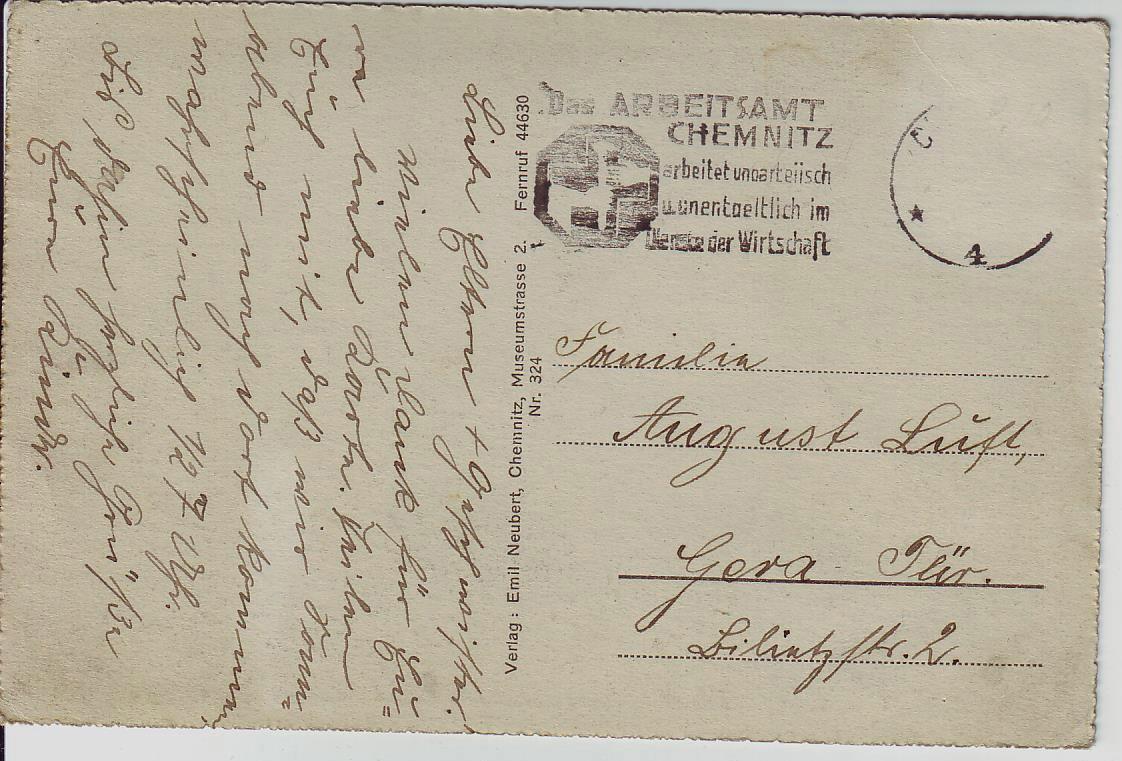 Liebe Eltern + Geschwister!
Vielen Dank für Eu=
re liebe Karte. Teilen
Euch mit, daß wir Sonn=
abend nach dort kommen,
wahrscheinlich 1/2 7 Uhr.
Bis dahin herzliche Grüße
Eure Kinder.
Verlag: Emil Neubert, Chemnitz, Museumstrasse 2. Fernruf 44630
Nr. 324
Das ARBEITSAMT
CHEMNITZ
arbeitet unparteiisch
u. unentgeltlich im
Dienste der Wirtschaft
4
Familie
August Luft,
Gera Thür.
Bilietzstr. 2.